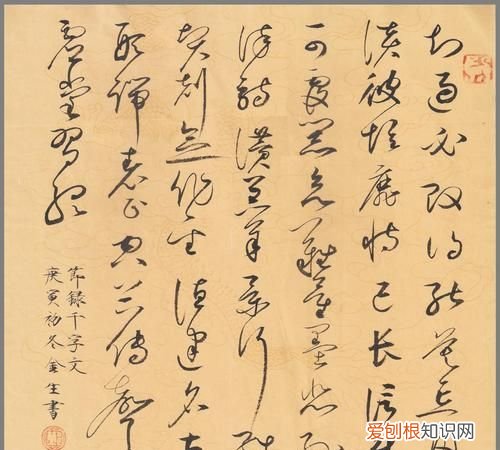 知過必改得能莫忘罔
談彼短靡恃己長信使
可覆器欲難量墨悲絲
詩讚羔羊景行維
賢剋念作聖德建名立
形端表正空谷傳聲
虛堂習聽
節錄千字文
庚寅初冬金生書
爱刨根知识网